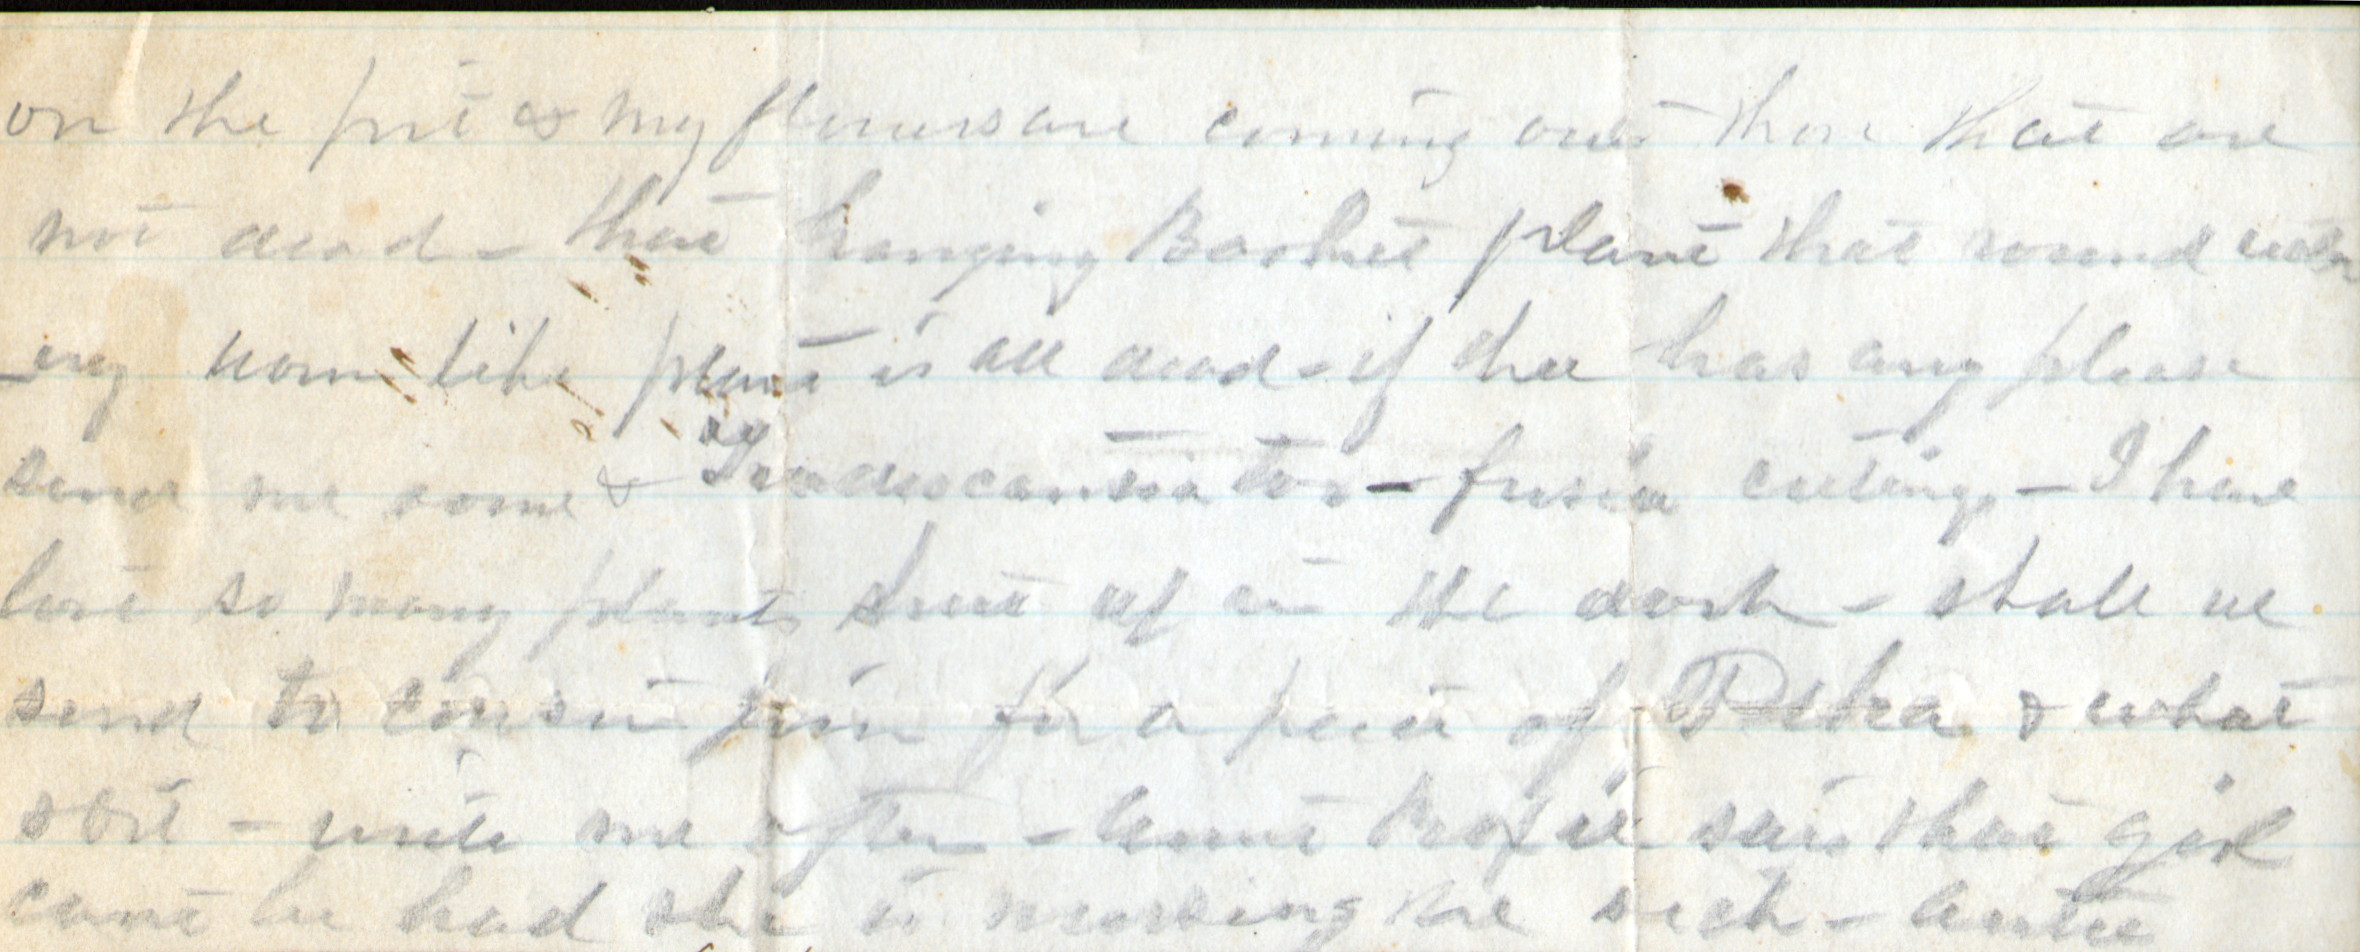 on the pit & my flowers are coming out those that are
not dead - that hanging Basket plant that round
ery worm like plant is all dead - if thee has any please
send me some & Tradescantsia too - fusia cutings - I have
lost so many plants shut up in the dark - shall we
send to cousin for a peice of & what
sort - write me often - Aunt says that girl
cant be had she is nursing the sick - Auntie